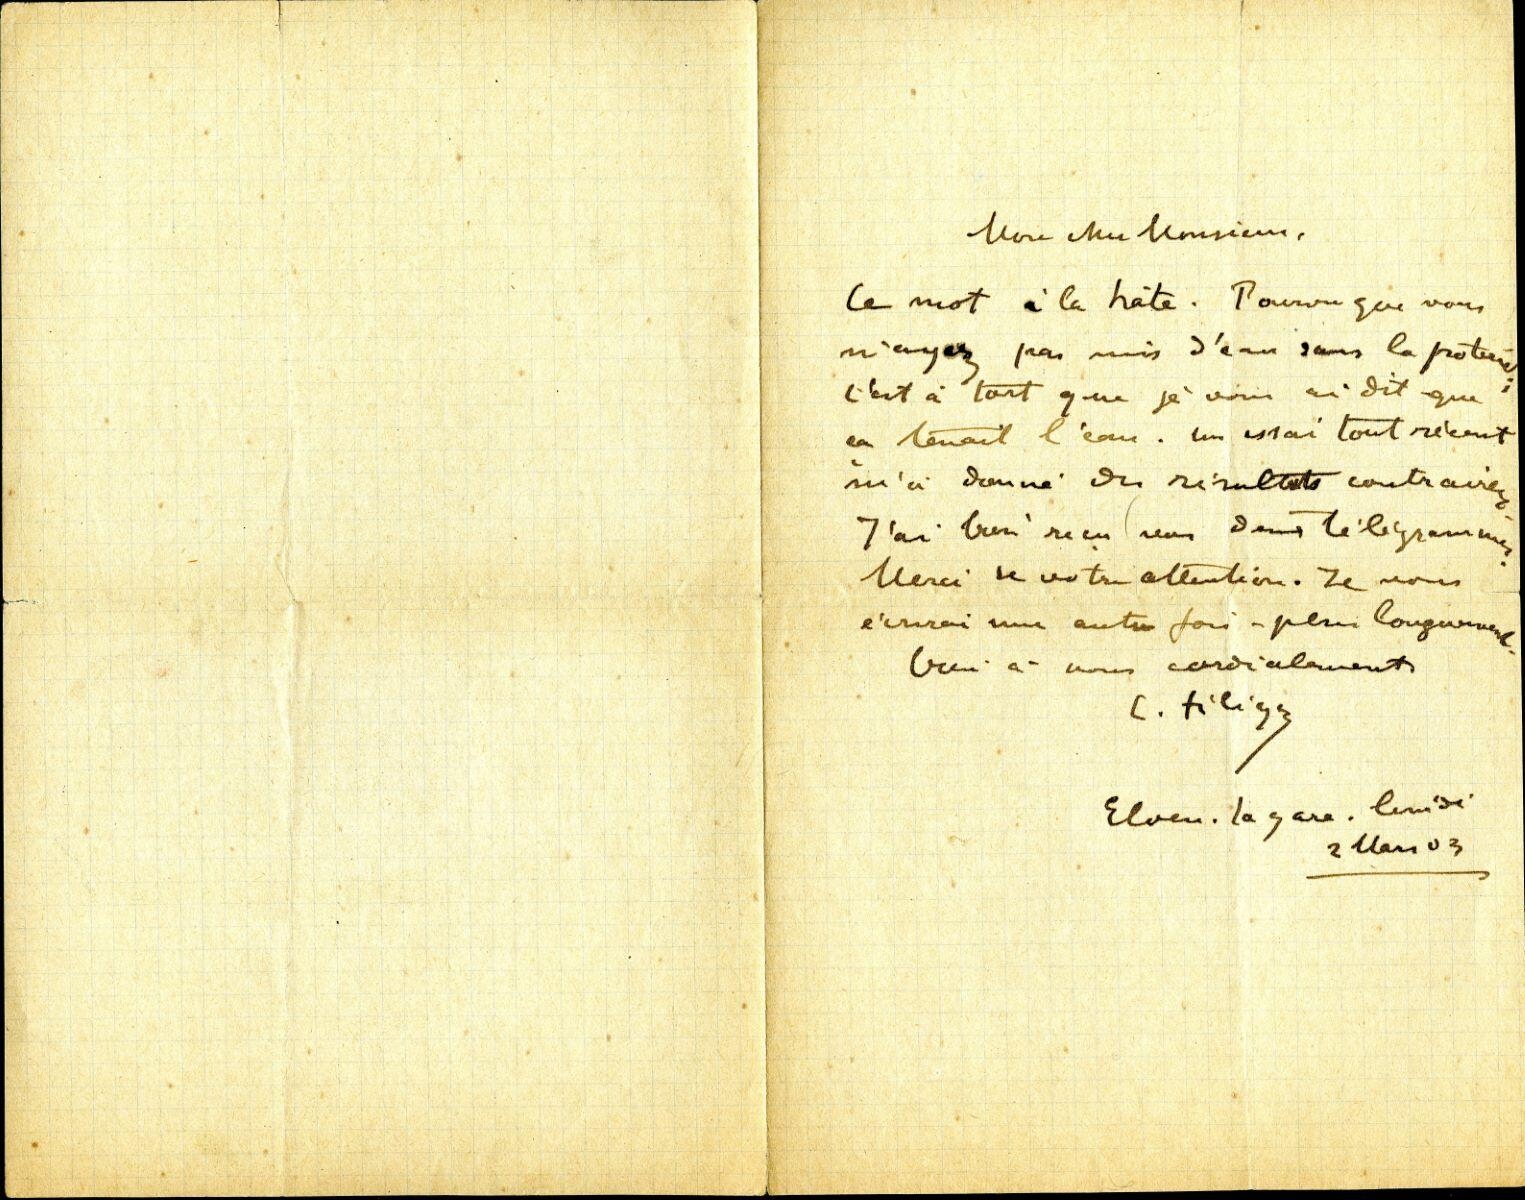 Mon cher Monsieur,
Ce mot à la hâte. Pourvu que vous
n'ayez pas mis d'eau dans la poterie ;
c'est à tort que je vous ai dit que
ça tenait l'eau. un essai tout récent
m'a donné des résultats contraires.
J'ai bien reçu vos deux télégrammes.
Merci de votre attention. Je vous
écrirai une autre fois - plus longuement.
bien à vous cordialement
C. Filiger
Elven. la gare. lundi
2 Mars 03